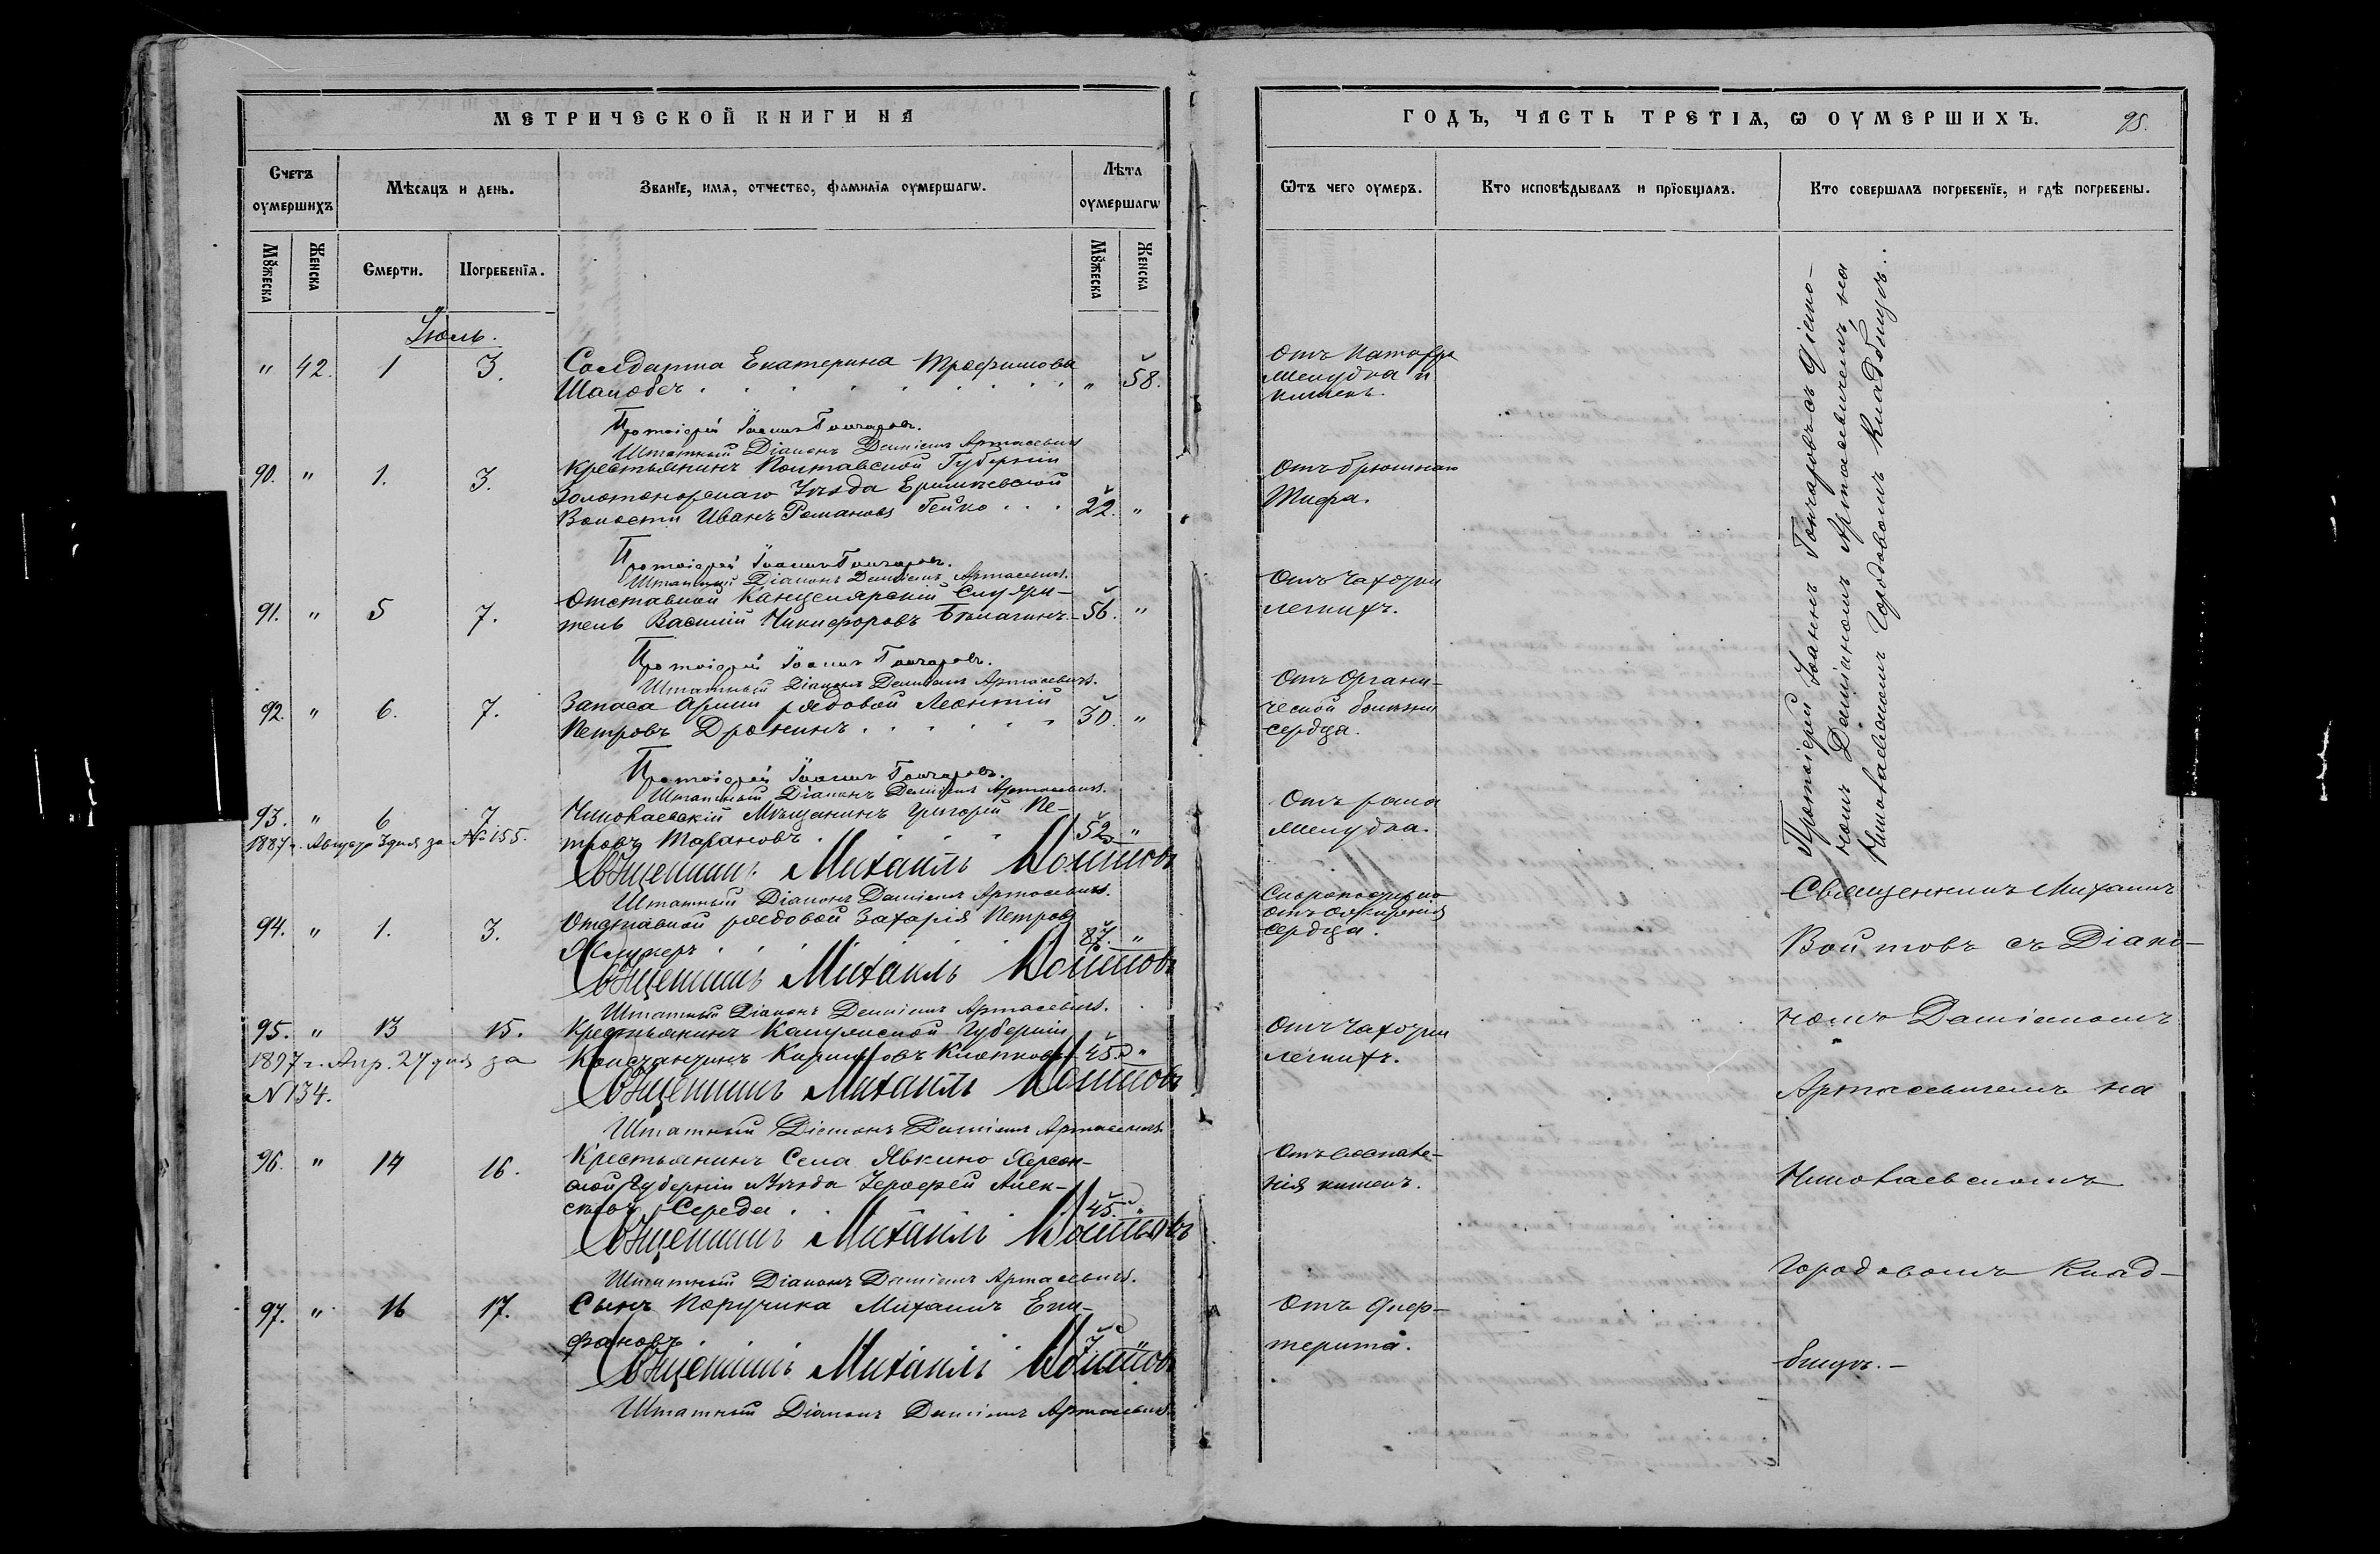 МЕТРИЧЕСКОЙ КНИГИ НА
Счетъ оумершихъ
Мѣсяцъ и день.
Званїе, имя, отчество, фамилїя оумершагѡ.
Лѣта оумершагѡ
Мꙋжеска
Женска
Смерти.
Погребенїя.
Мꙋжеска
Женска
Іюль.
" 42. 1 3. Солдатка Екатерина Трофимова
Шаповъ " 58.
Протоіерей Іоаннъ Гончаровъ.
Штатный Діаконъ Даміанъ Артасевичъ
90. " 1. 3. Крестьянинъ Полтавской Губерніи
Золотоношскаго Уѣзда
Волости Иванъ Романовъ Гейко 22. "
Протоіерей Іоаннъ Гончаровъ.
Штатный Діаконъ Даміанъ Артасевичъ.
91. " 5 7. Отставной Канцелярскій Служи-
тель Василій Никифоровъ 56. "
Протоіерей Іоаннъ Гончаровъ.
Штатный Діаконъ Даміанъ Артасевичъ.
92. " 6. 7. Запаса Арміи рядовой Леонтій
Петровъ Дронинъ 30. "
Протоіерей Іоаннъ Гончаровъ.
Штатный Діаконъ Даміанъ Артасевичъ.
93. " 6 7 Николаевскій Мѣщанинъ Григорій Пе-
1887 г. Августа 3 дня за № 155. тровъ Тарановъ 52 "
Священникъ Михаилъ Войтовъ
Штатный Діаконъ Даміанъ Артасевичъ.
94. " 1. 3. Отставной рядовой Захарія Петровъ
87. "
Священникъ Михаилъ Войтовъ
Штатный Діаконъ Даміанъ Артасевичъ.
95. " 13 15. Крестьянинъ Калужской Губерніи
1897 г. Апр. 27 дня за Константинъ Кирилловъ 45. "
N 134.
Священникъ Михаилъ Войтовъ
Штатный Діаконъ Даміанъ Артасевичъ.
96. " 14 16. Крестьянинъ Села Явкино Херсон-
ской Губерніи и Уѣзда Іерофей Алек-
Середа 45. "
Священникъ Михаилъ Войтовъ
Штатный Діаконъ Даміанъ Артасевичъ.
97. " 16 17. Сынъ Поручика Михаилъ Епи-
фановъ 7. "
Священникъ Михаилъ Войтовъ
Штатный Діаконъ Даміанъ Артасевичъ.
ГОДЪ, ЧАСТЬ ТРЕТІЯ, Ѡ ОУМЕРШИХЪ.
95.
Ѿтъ чего оумеръ.
Кто исповѣдывалъ и прїобщалъ.
Кто совершалъ погребенїе, и гдѣ погребены.
Отъ катарра
желудка и
кишекъ.
Отъ брюшнаго
Тифа.
Отъ Чахотки
легкихъ.
Отъ Органи-
ческой болѣзни
сердца.
Отъ рака
желудка.
Скоропостижно
отъ ожирѣнія
сердца.
Отъ Чахотки
легкихъ.
Отъ воспале-
нія кишекъ.
Отъ Диф-
терита.
Протоіерей Іоаннъ Гончаровъ съ Діако-
номъ Даміаномъ Артасевичемъ на
Николаевскомъ Городовомъ Кладбищѣ.
Священникъ Михаилъ
Войтовъ съ Діако-
номъ Даміаномъ
Артасевичемъ на
Николаевскомъ
Городовомъ Клад-
бищѣ. –